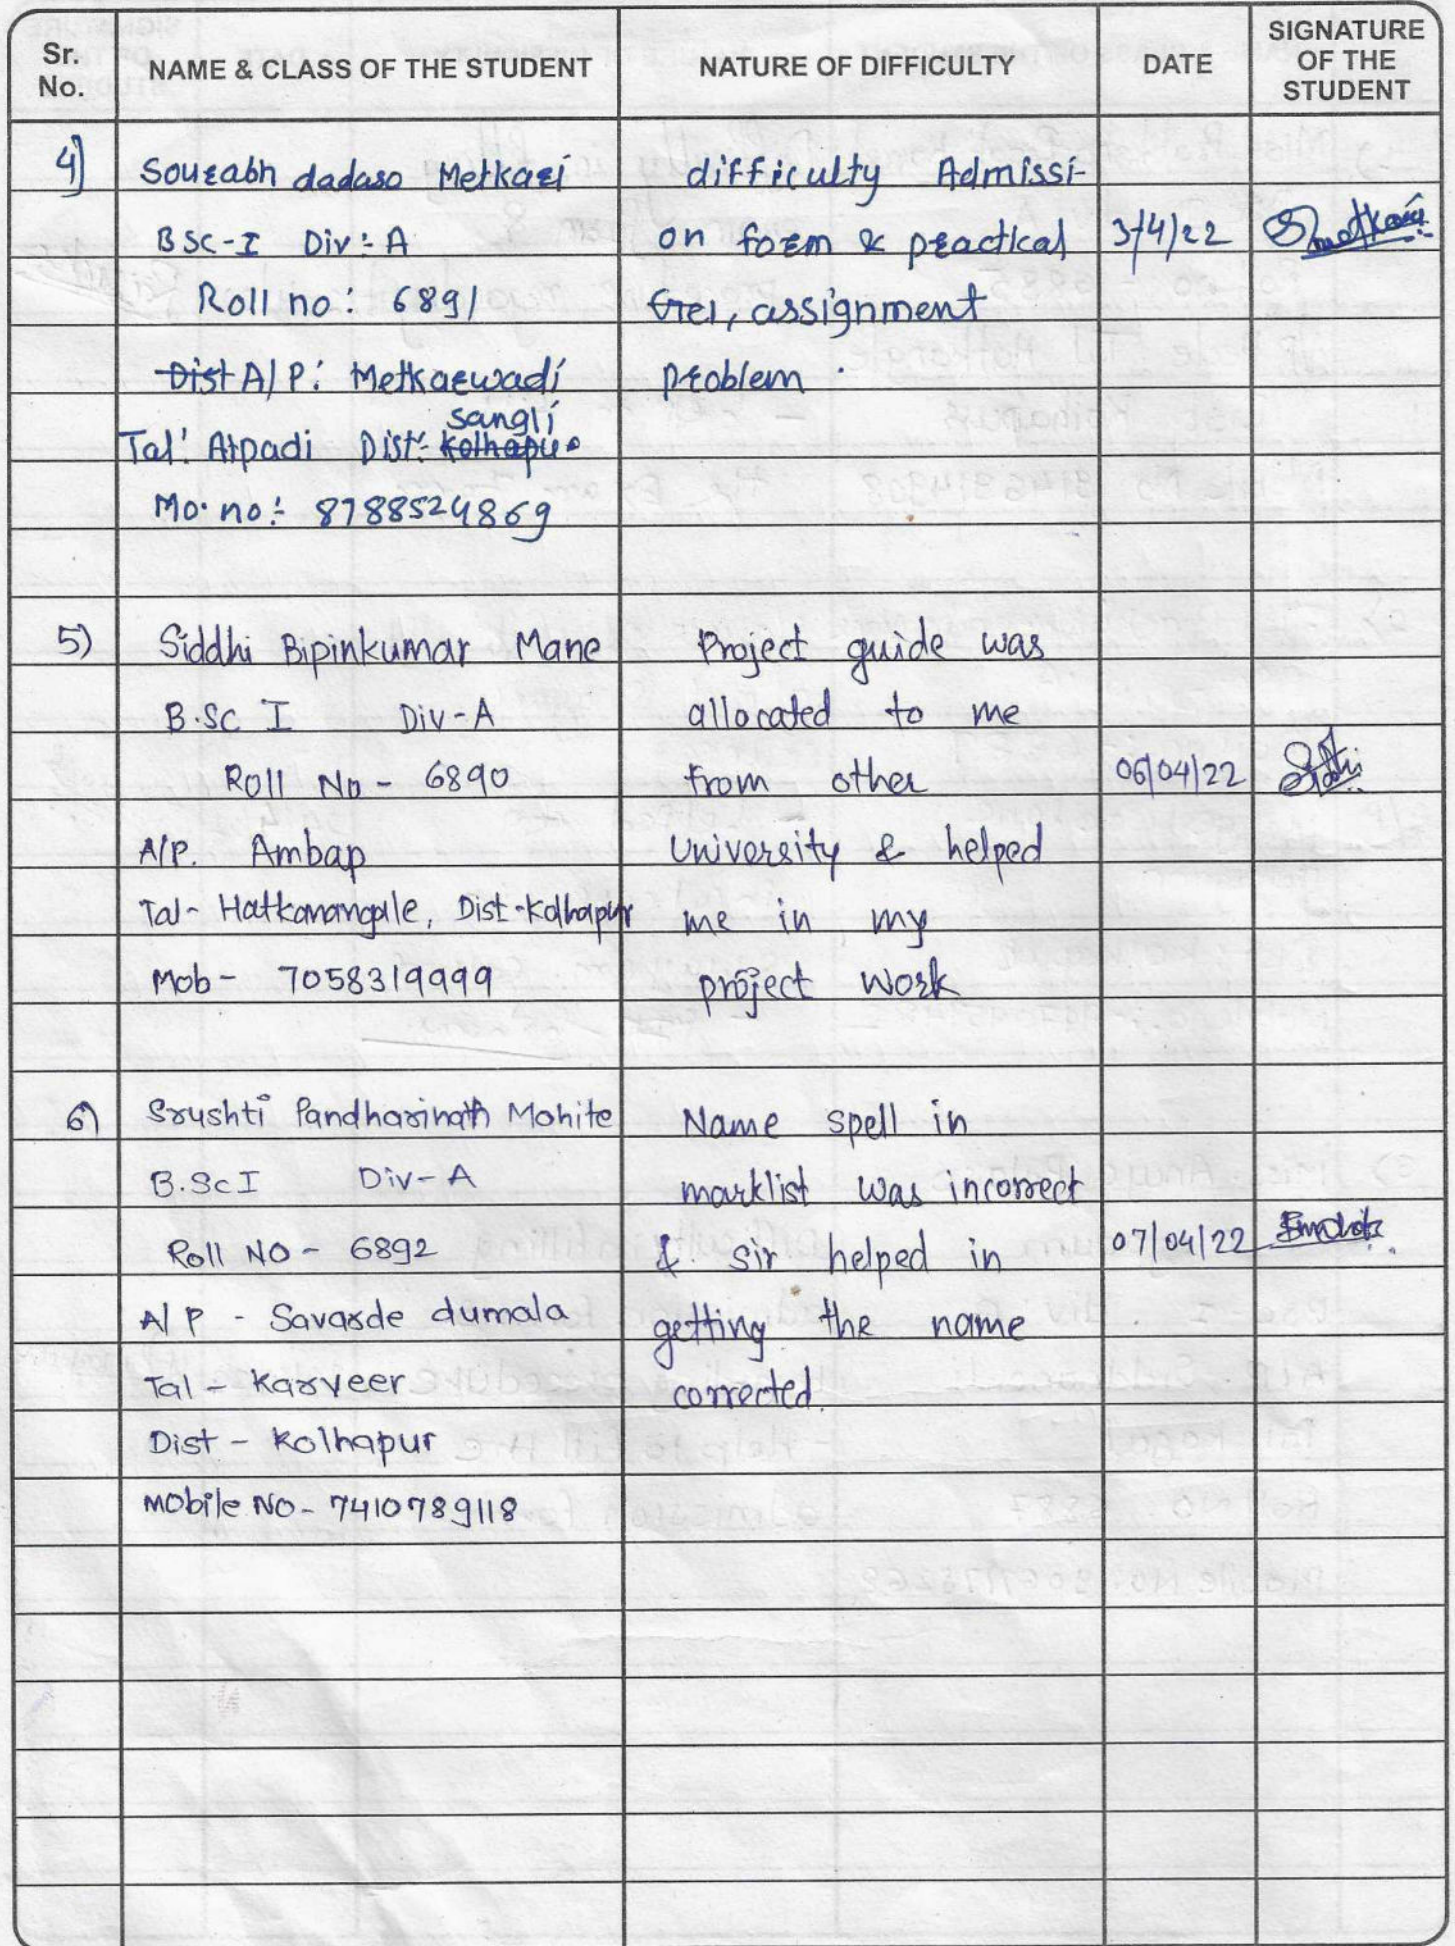 Sr. No.
NAME & CLASS OF THE STUDENT
NATURE OF DIFFICULTY
DATE
SIGNATURE OF THE STUDENT
4)
Sourabh dadaso Metkari
BSC-I Div:- A
Roll no: 6891
Dist A/P: Metkarwadi
sangli
Tal: Atpadi Dist:- Kolhapur
Mo. no:- 8788524869
difficulty Admissi-
on form & practical
, assignment
problem .
3/4/22
5)
Siddhi Bipinkumar Mane
B.SC I Div-A
Roll No - 6890
A/P. Ambap
Tal- Hatkanangale, Dist-Kolhapur
Mob- 7058319999
Project guide was
allocated to me
from other
University & helped
me in my
project work
06/04/22
6)
Srushti Pandharinath Mohite
B.Sc I Div- A
Roll NO - 6892
A/P - Savarde dumala
Tal - Karveer
Dist - Kolhapur
Mobile NO - 7410789118
Name spell in
marklist was incorrect
& sir helped in
getting the name
corrected.
07/04/22